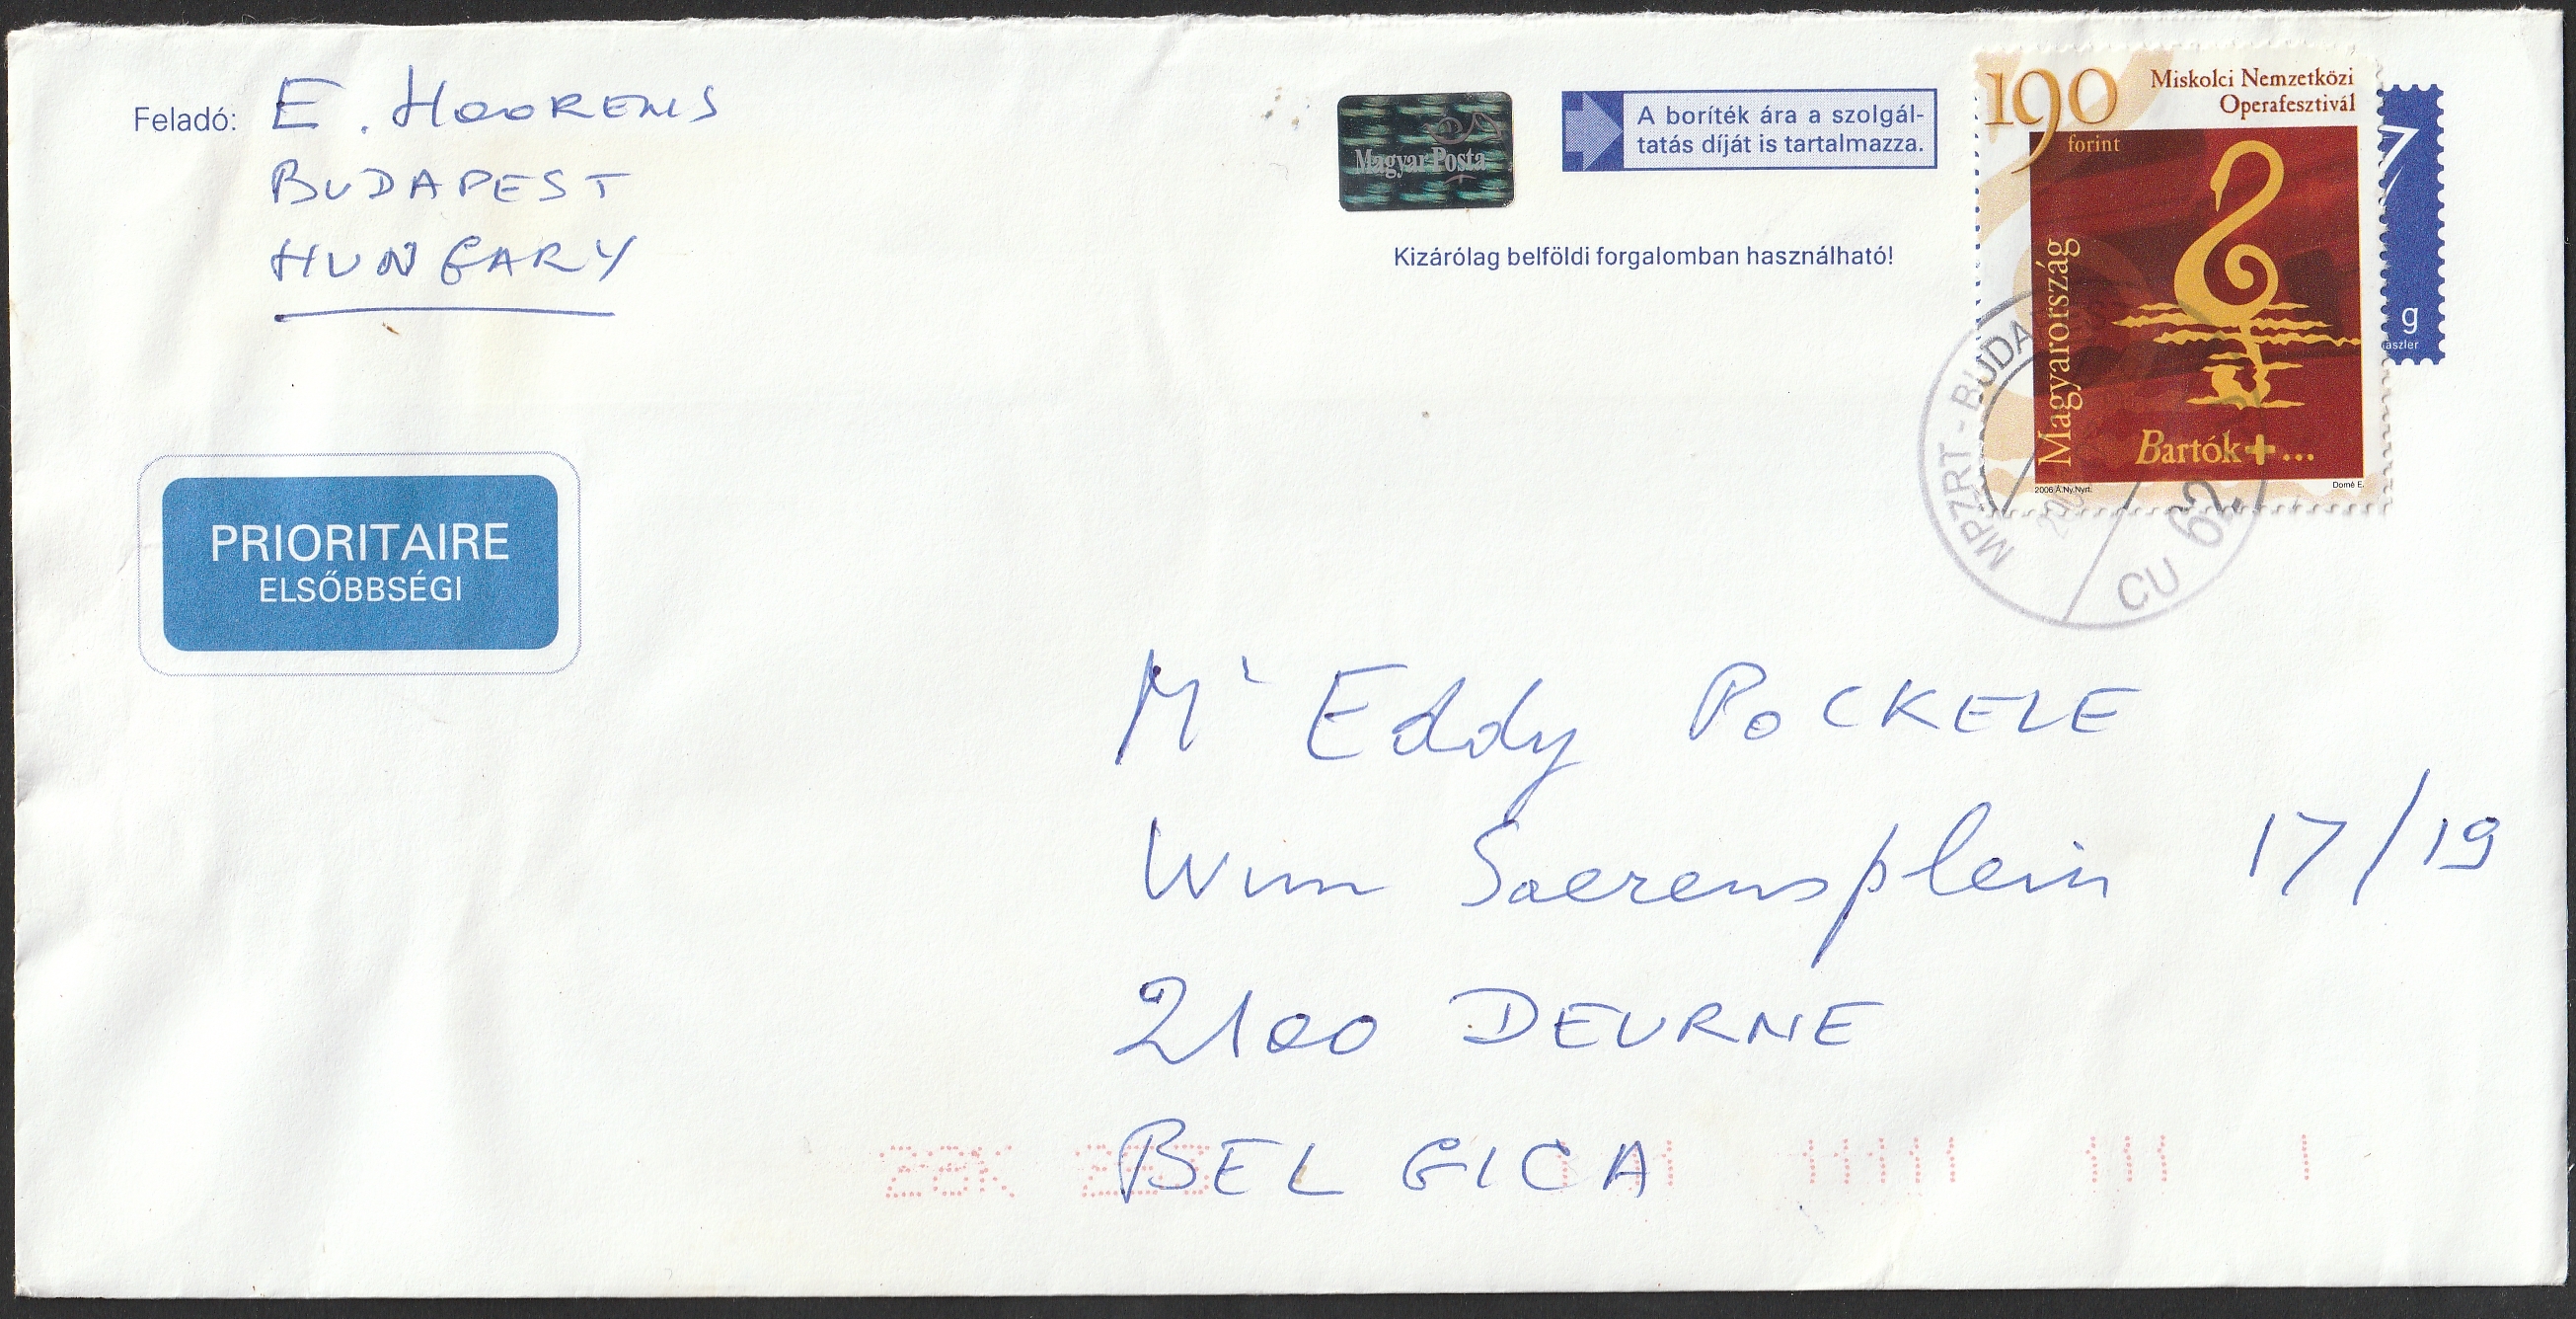 Feladó: E. HOORENS
BUDAPEST
HUNGARY
Magyar Posta
A boríték ára a szolgál-
tatás díját is tartalmazza.
Kizárólag belföldi forgalomban használható!
190
forint
Miskolci Nemzetközi
Operafesztivál
Magyarország
Bartók+...
2006 Á.Ny.Nyrt.
Domé E.
g
MPZRT-BUDA
CU 62
PRIORITAIRE
ELSŐBBSÉGI
Mr Eddy POCKELE
Wim Saerensplein 17/19
2100 DEURNE
BELGICA